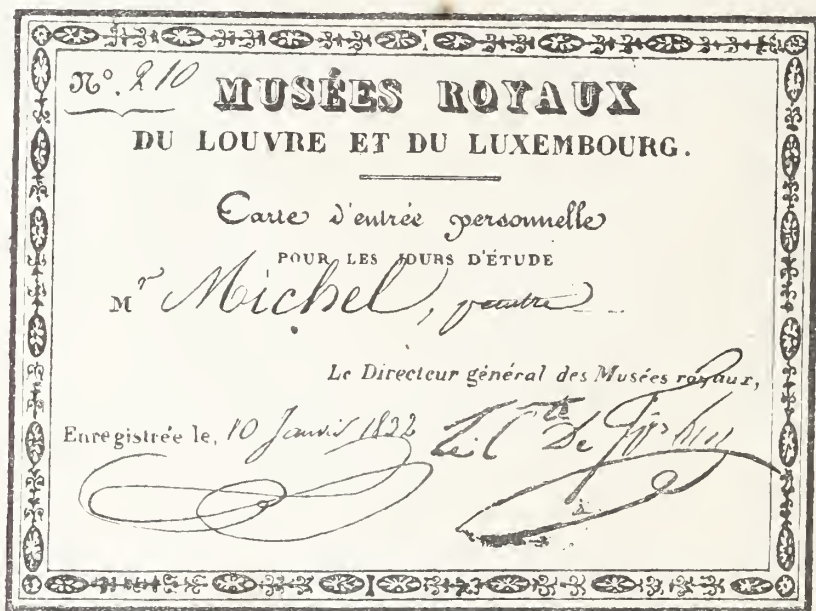 N.º 210
MUSÉES ROYAUX
DU LOUVRE ET DU LUXEMBOURG.
Carte d'entrée personnelle
POUR LES JOURS D'ÉTUDE
Mr Michel, peintre
Le Directeur général des Musées royaux,
Enregistrée le, 10 Janvier 1832 Le Cte De Forbin